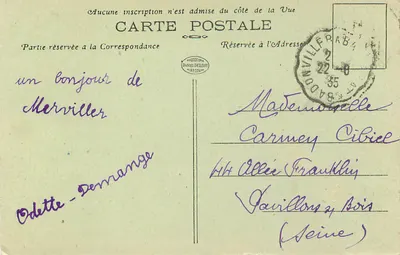 Aucune inscription n'est admise du côté de la Vue
CARTE POSTALE
Partie réservée à la Correspondance
Réservée à l'Adresse
22 -8
35
un bonjour de
Merviller
Odette - Demange
Mademoiselle
Carmen Cibiel
44 Allée Franklin
Pavillons s/ Bois
(Seine)